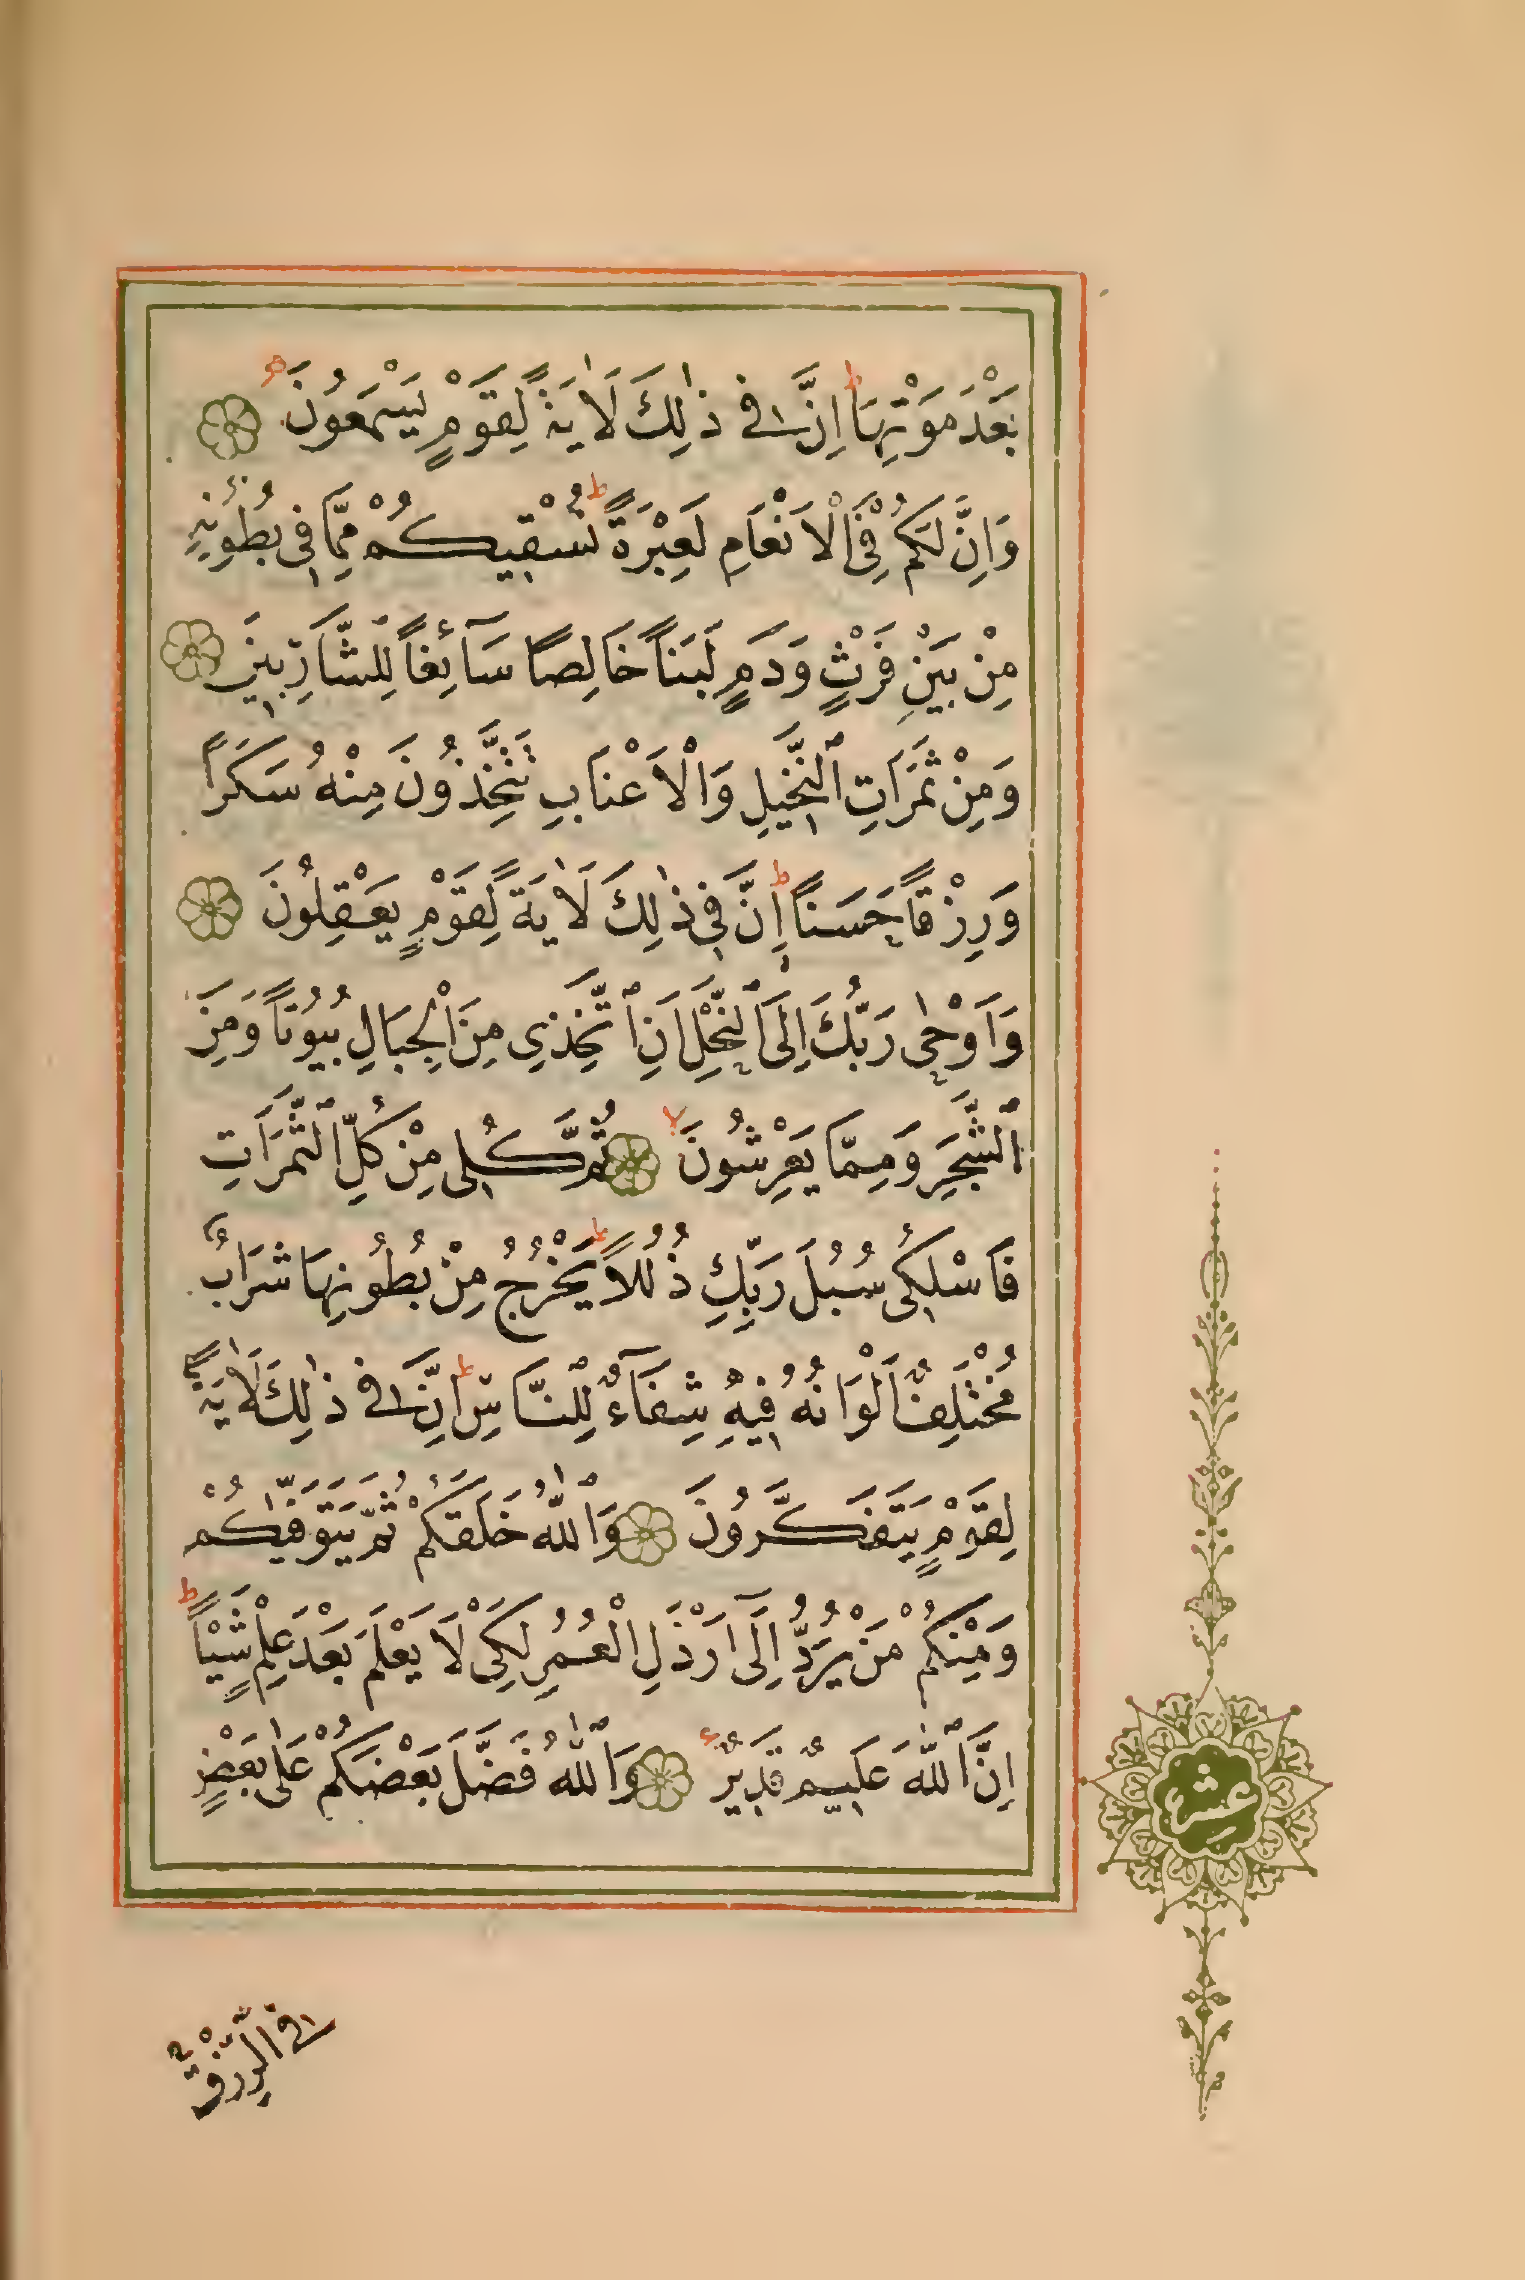 بَعْدَ مَوْتِهَا ط اِنَّ فِى ذٰلِكَ لَاٰيَةً لِقَوْمٍ يَسْمَعُونَ
وَاِنَّ لَكُمْ فِى الْاَنْعَامِ لَعِبْرَةً ط نُسْقِيكُمْ مِمَّا فِى بُطُونِهِ
مِنْ بَيْنِ فَرْثٍ وَدَمٍ لَبَناً خَالِصًا سَآئِغاً لِلشَّارِبِينَ
وَمِنْ ثَمَرَاتِ ٱلنَّخِيلِ وَالْاَعْنَابِ تَتَّخِذُونَ مِنْهُ سَكَرًا
وَرِزْقاً حَسَنًا ط اِنَّ فِى ذٰلِكَ لَاٰيَةً لِقَوْمٍ يَعْقِلُونَ
وَاَوْحٰى رَبُّكَ اِلَى ٱلنَّحْلِ اَنِ ٱتَّخِذِى مِنَ الْجِبَالِ بُيُوتاً وَمِنَ
ٱلشَّجَرِ وَمِمَّا يَعْرِشُونَ لا ثُمَّ كُلِى مِنْ كُلِّ ٱلثَّمَرَاتِ
فَاسْلُكِى سُبُلَ رَبِّكِ ذُلُلاً ط يَخْرُجُ مِنْ بُطُونِهَا شَرَابٌ
مُخْتَلِفٌ اَلْوَانُهُ فِيهِ شِفَآءٌ لِلنَّاسِ ط اِنَّ فِى ذٰلِكَ لَاٰيَةً
لِقَوْمٍ يَتَفَكَّرُونَ وَٱللّٰهُ خَلَقَكُمْ ثُمَّ يَتَوَفّٰيكُمْ
وَمِنْكُمْ مَنْ يُرَدُّ اِلَىٓ اَرْذَلِ الْعُمُرِ لِكَىْ لَا يَعْلَمَ بَعْدَ عِلْمٍ شَيْئاً ط
اِنَّ ٱللّٰهَ عَلِيمٌ قَدِيرٌ ع وَٱللّٰهُ فَضَّلَ بَعْضَكُمْ عَلٰى بَعْضٍ
عشر
فِى الرِّزْقِ